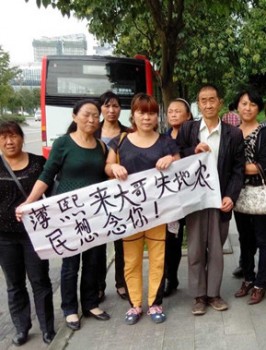 薄熙来大哥失地农
民想念你！